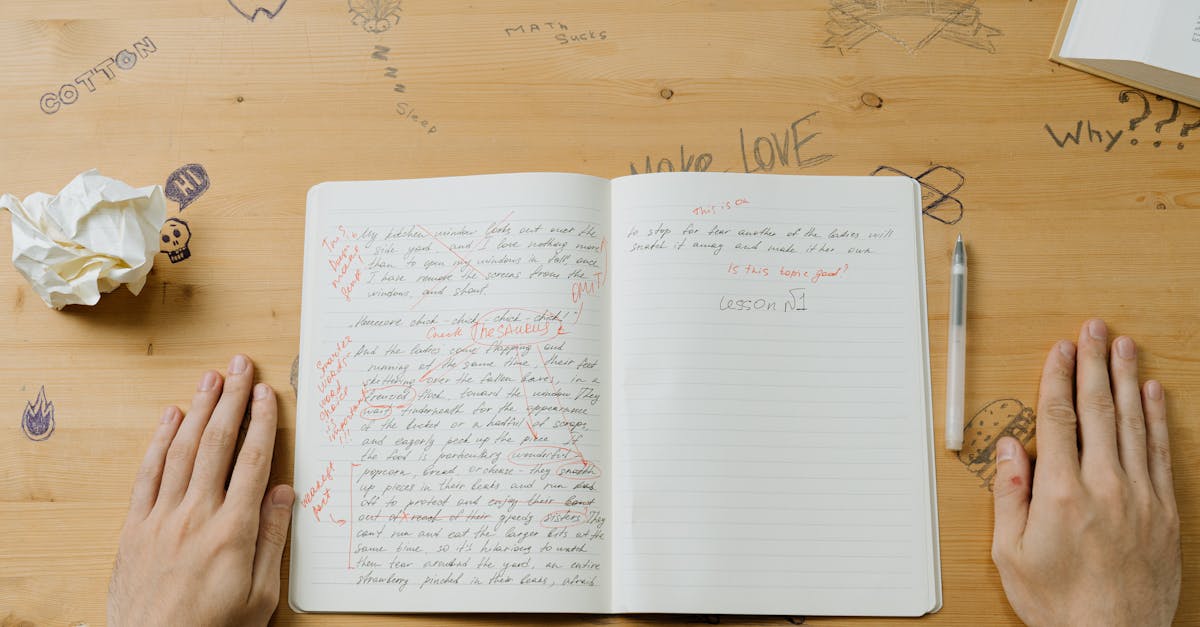 COTTON
z
z
z
Sleep
MATH
SUCKS
Make LOVE
Why???
HI
This
dump
many
gems
My kitchen window looks out over the
side yard and I love nothing more
than to open my windows in fall, once
I have remove the screens from the
windows, and shout.
OMIT!
"Heeeeere chick-chick-chick-chick!"
Check THESAURUS
And the ladies come flapping and
running at the same time, their feet
skittering over the fallen leaves, in a
frenzied flock, toward the window. They
wait underneath for the appearance
of the bucket or a handful of scraps,
and eagerly peck up the piece. If
the food is particulary wonderful -
popcorn, bread, or cheese - they snatch
up pieces in their beaks and run
off to protect and enjoy their
out of reach of their greedy sisters. They
can't run and eat the larger bits at the
same time, so it's hilarious to watch
them tear around the yard, an entire
strawberry pinched in their beaks, afraid
Smarter
words
word
choice
is
important
!!!
weakest
part
This is ok
to stop for fear another of the ladies will
snatch it away and make it her own
Is this topic good?
Lesson №1